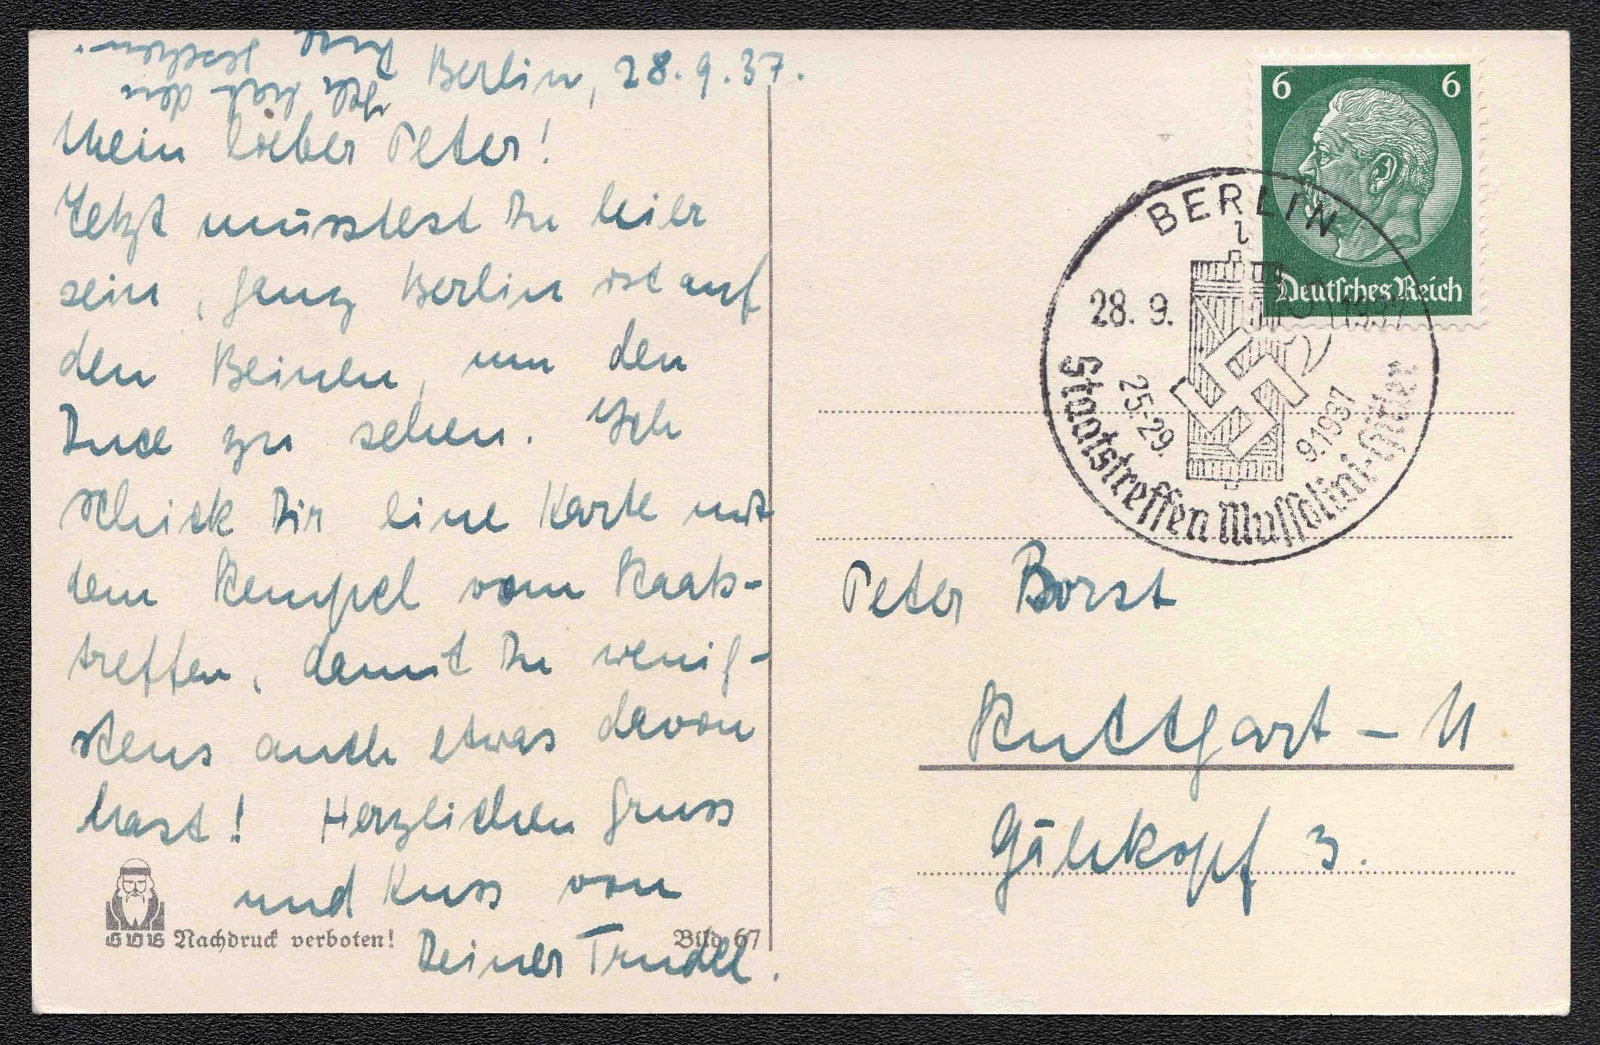 Berlin, 28.9.37.
Mein lieber Peter!
Jetzt müsstest Du hier
sein, ganz Berlin ist auf
den Beinen, um den
Duce zu sehen. Ich
schick Dir eine Karte mit
dem Stempel vom Staats-
treffen, damit Du wenig-
stens auch etwas davon
hast! Herzlichen Gruss
und Kuss von
Deiner Trudel.
Ich hab den
Duce gesehen!
Nachdruck verboten!
Bild 67
6 6
Deutsches Reich
BERLIN
28. 9. 1937
25.-29. 9.1937
Staatstreffen Mussolini-Hitler
Peter Borst
Stuttgart - N
Gähkopf 3.